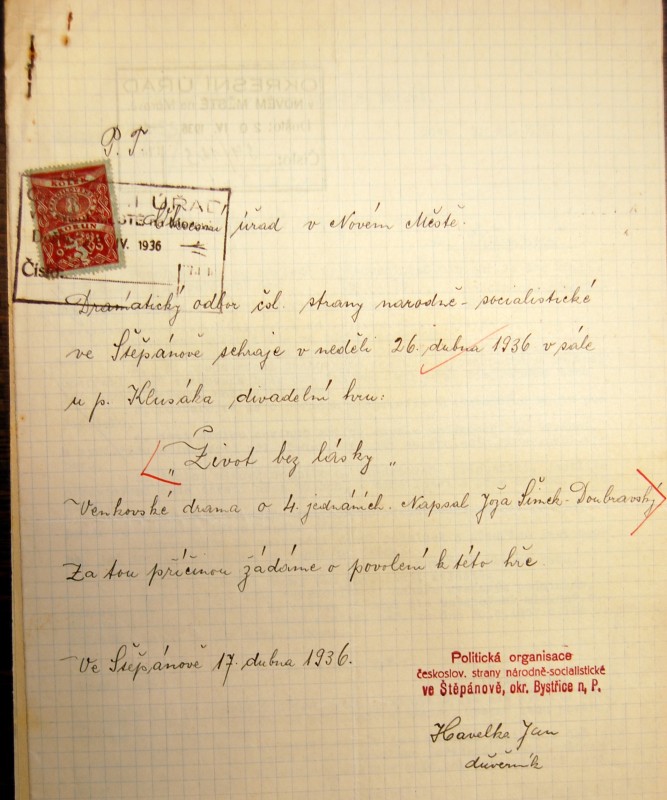 OKRESNÍ ÚŘAD
v NOVÉM MĚSTĚ na Mor.
Došlo: 20. IV. 1936
Číslo:
P. T.
ÚŘAD
IV. 1936
Číslo:
úřad v Novém Městě.
Dramatický odbor čsl. strany narodně-socialistické
ve Štěpánově sehraje v neděli 26. dubna 1936 v sále
u p. Klusáka divadelní hru:
„Život bez lásky„
Venkovské drama o 4. jednáních. Napsal Joža Šimek-Doubravský
Za tou příčinou žádáme o povolení k této hře.
Ve Štěpánově 17. dubna 1936.
Politická organisace
českoslov. strany národně-socialistické
ve Štěpánově, okr. Bystřice n, P.
Havelka Jan
důvěrník